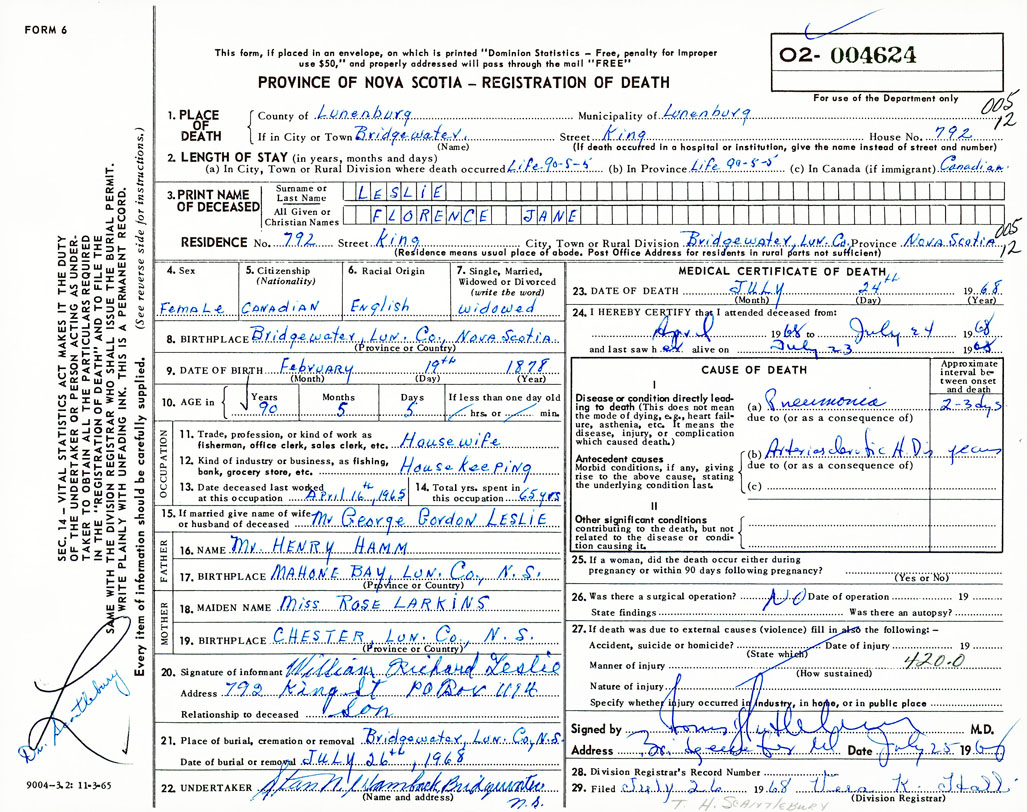 FORM 6
This form, if placed in an envelope, on which is printed "Dominion Statistics – Free, penalty for Improper
use $50," and properly addressed will pass through the mail "FREE"
PROVINCE OF NOVA SCOTIA – REGISTRATION OF DEATH
O2- 004624
For use of the Department only
005
12
1. PLACE OF DEATH
County of Lunenburg Municipality of Lunenburg
If in City or Town Bridgewater, Street King House No. 792
(Name) (If death occurred in a hospital or institution, give the name instead of street and number)
2. LENGTH OF STAY (in years, months and days)
(a) In City, Town or Rural Division where death occurred Life 90-5-5 (b) In Province Life 90-5-5 (c) In Canada (if immigrant) Canadian
3. PRINT NAME OF DECEASED
Surname or Last Name LESLIE
All Given or Christian Names FLORENCE JANE
005
12
RESIDENCE No. 792 Street King City, Town or Rural Division Bridgewater, Lun. Co. Province Nova Scotia
(Residence means usual place of abode. Post Office Address for residents in rural parts not sufficient)
4. Sex
Female
5. Citizenship
(Nationality)
Canadian
6. Racial Origin
English
7. Single, Married,
Widowed or Divorced
(write the word)
Widowed
8. BIRTHPLACE Bridgewater, Lun. Co., Nova Scotia
(Province or Country)
9. DATE OF BIRTH February 19th 1878
(Month) (Day) (Year)
10. AGE in Years Months Days If less than one day old
90 5 5 hrs. or min.
OCCUPATION
11. Trade, profession, or kind of work as
fisherman, office clerk, sales clerk, etc. Housewife
12. Kind of industry or business, as fishing,
bank, grocery store, etc. Housekeeping
13. Date deceased last worked
at this occupation April 16th, 1965
14. Total yrs. spent in
this occupation 65 yrs
15. If married give name of wife
or husband of deceased Mr George Gordon LESLIE
FATHER
16. NAME Mr. HENRY HAMM
17. BIRTHPLACE MAHONE BAY, LUN. Co., N.S.
(Province or Country)
MOTHER
18. MAIDEN NAME Miss ROSE LARKINS
19. BIRTHPLACE CHESTER, LUN. Co., N.S.
(Province or Country)
20. Signature of informant William Richard Leslie
Address 792 King St PO Box
Relationship to deceased Son
21. Place of burial, cremation or removal Bridgewater, Lun. Co., N.S.
Date of burial or removal JULY 26th, 1968
22. UNDERTAKER Bridgewater
N.S.
(Name and address)
MEDICAL CERTIFICATE OF DEATH
23. DATE OF DEATH JULY 24th 1968
(Month) (Day) (Year)
24. I HEREBY CERTIFY that I attended deceased from:
April 1968 to July 24 1968
and last saw her alive on July 23 1968
CAUSE OF DEATH
Approximate
interval be-
tween onset
and death
I
Disease or condition directly lead-
ing to death (This does not mean
the mode of dying, e.g., heart fail-
ure, asthenia, etc. It means the
disease, injury, or complication
which caused death.)
(a) Pneumonia 2-3 dys
due to (or as a consequence of)
Antecedent causes
Morbid conditions, if any, giving
rise to the above cause, stating
the underlying condition last.
(b) Arteriosclerotic H.D. years
due to (or as a consequence of)
(c)
II
Other significant conditions
contributing to the death, but not
related to the disease or condi-
tion causing it.
25. If a woman, did the death occur either during
pregnancy or within 90 days following pregnancy?
(Yes or No)
26. Was there a surgical operation? NO Date of operation 19
State findings Was there an autopsy?
27. If death was due to external causes (violence) fill in also the following: –
Accident, suicide or homicide? Date of injury 19
(State which)
420.0
Manner of injury
(How sustained)
Nature of injury
Specify whether injury occurred in industry, in home, or in public place
Signed by M.D.
Address Bridgewater Date July 25 1968
28. Division Registrar's Record Number
29. Filed July 26 1968
(Division Registrar)
T. H. SCANTLEBURY
SEC. 14 – VITAL STATISTICS ACT MAKES IT THE DUTY
OF THE UNDERTAKER OR PERSON ACTING AS UNDER-
TAKER TO OBTAIN ALL THE PARTICULARS REQUIRED
IN THE "REGISTRATION OF DEATH" AND TO FILE THE
SAME WITH THE DIVISION REGISTRAR WHO SHALL ISSUE THE BURIAL PERMIT.
WRITE PLAINLY WITH UNFADING INK. THIS IS A PERMANENT RECORD.
Every item of information should be carefully supplied. (See reverse side for instructions.)
Dr. Scantlebury
9004-3.2: 11-3-65